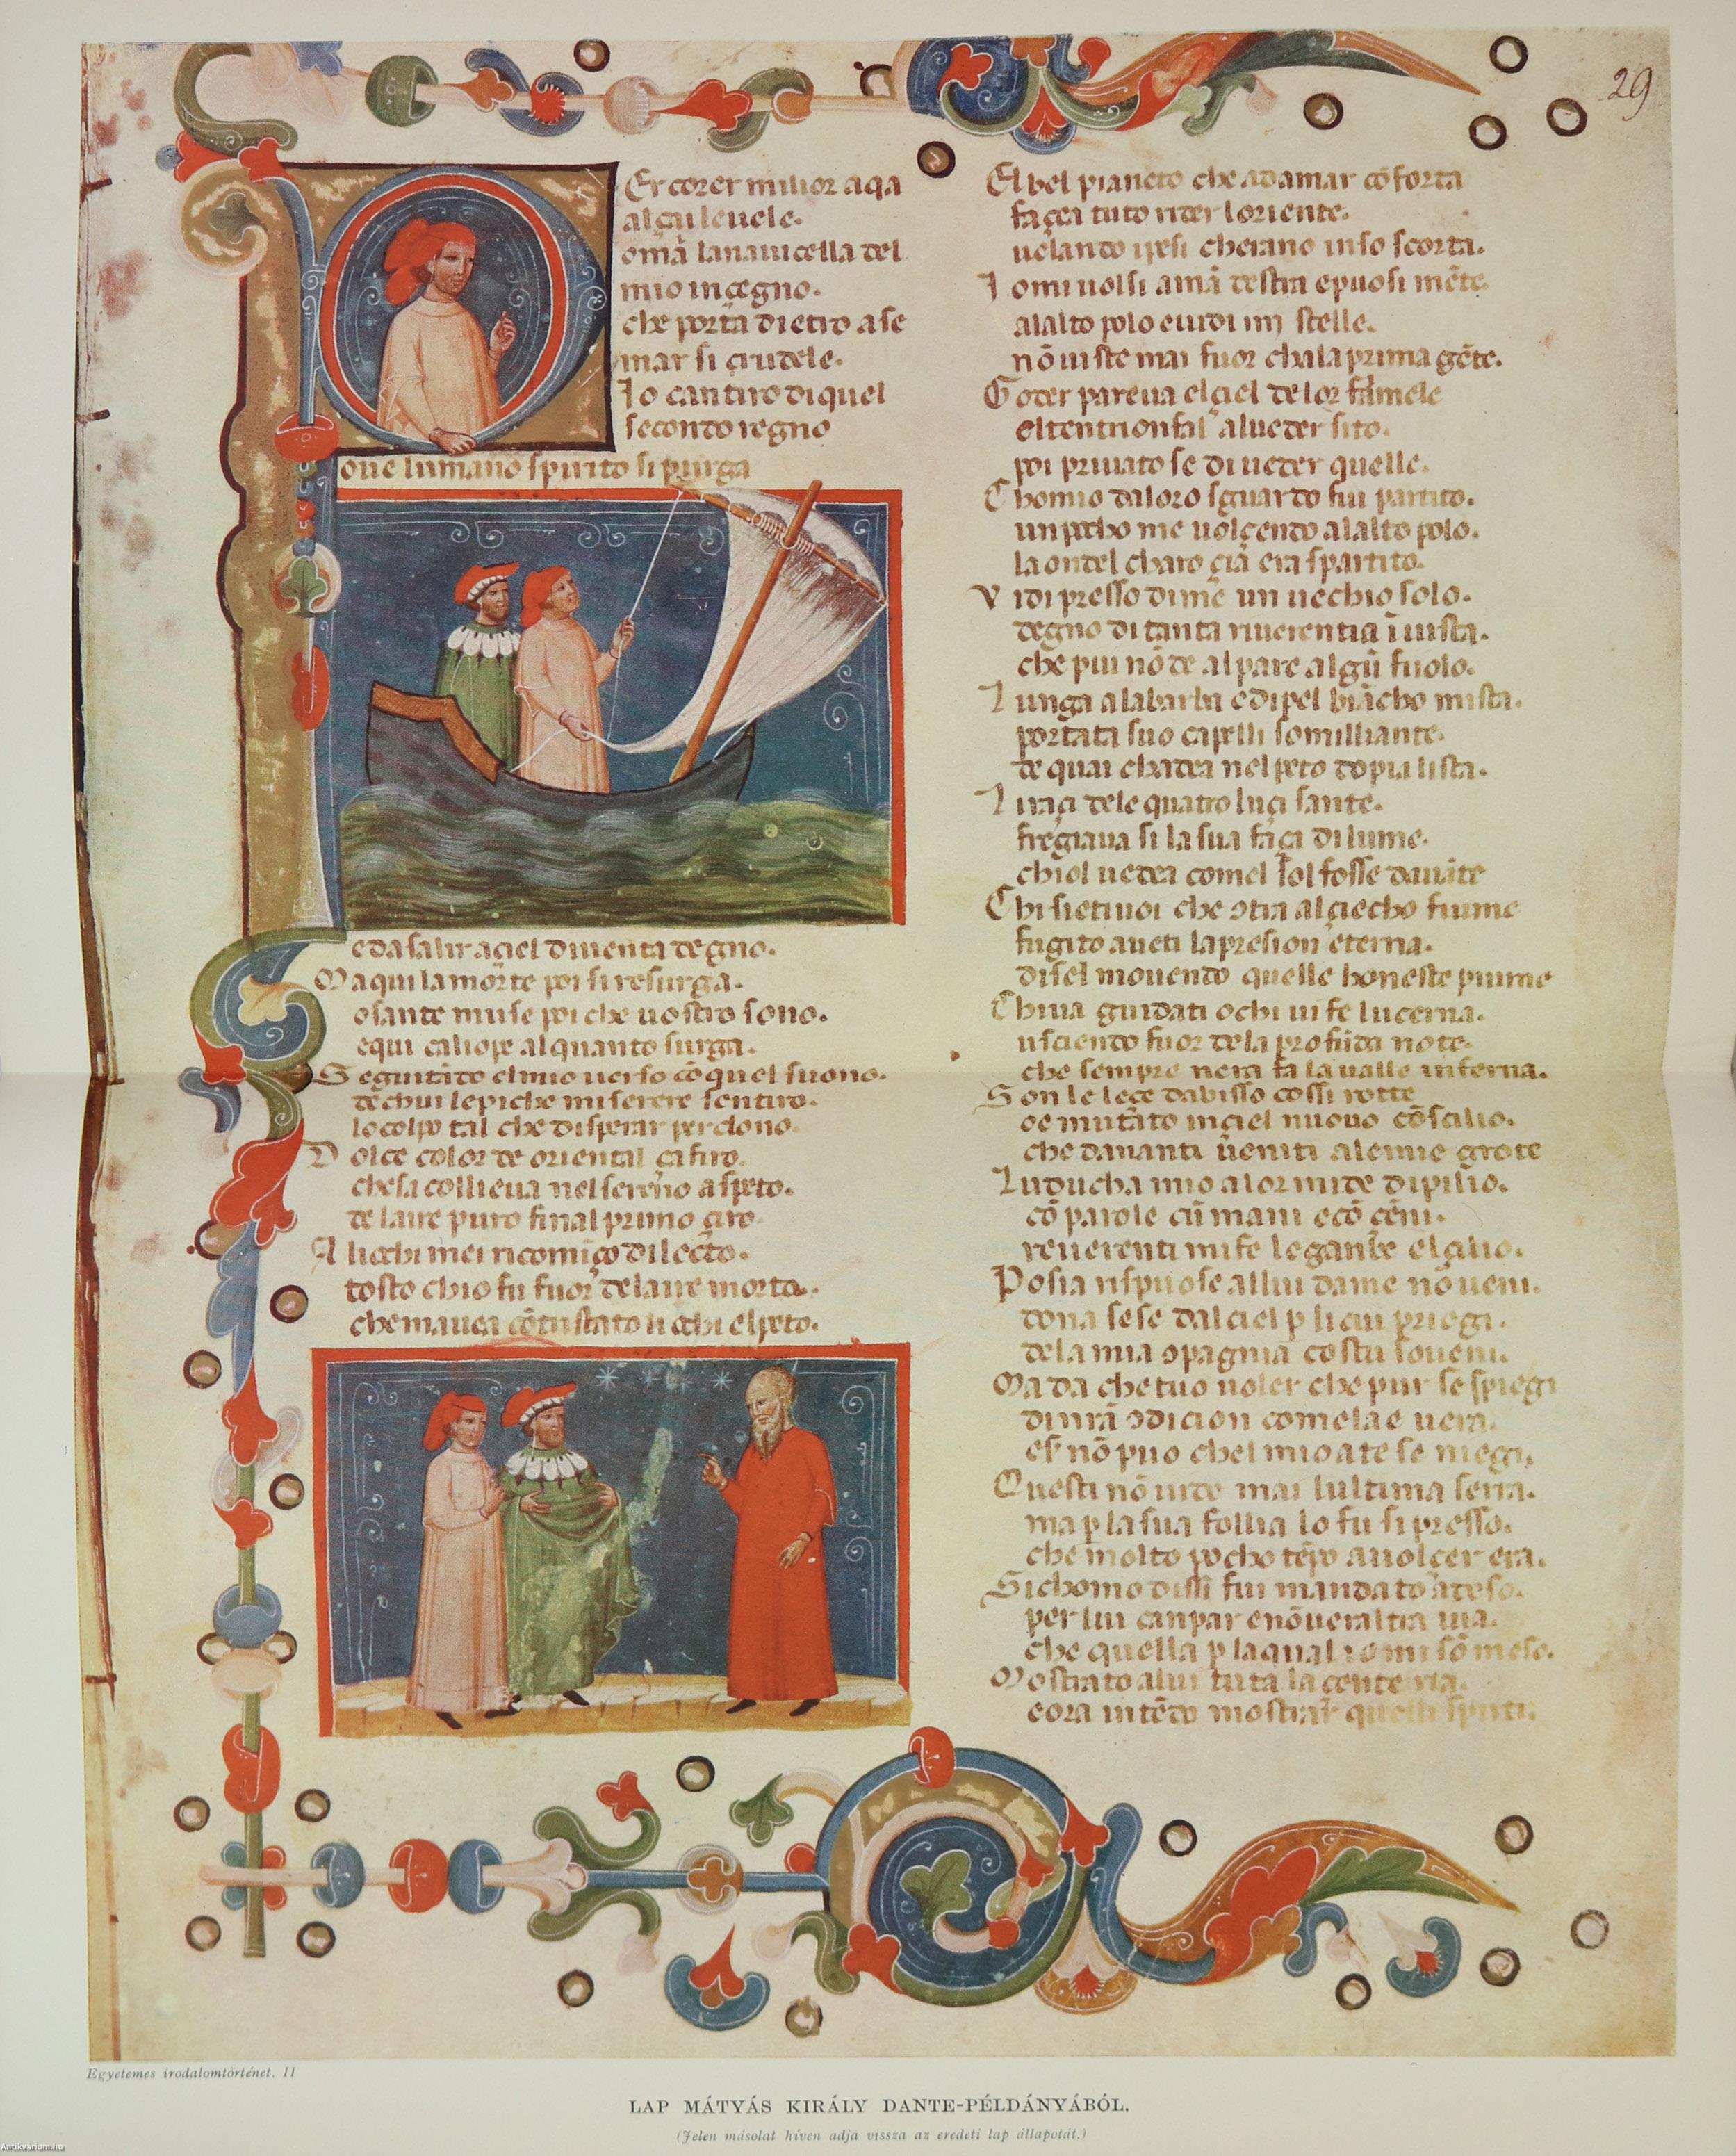 29
Er corer milior aqa
alçi le uele.
omã la nauicella del
mio ingegno.
che porta dietro a se
mar si crudele.
Io cantiro di quel
secondo regno
oue lumano spirito si purga
e da salir a ciel diuenta degno.
Ma qui la morte poi si resurga.
o sante muse poi che uostro sono.
e qui caliope alquanto surga.
Seguitãdo el mio uerso cõ quel suono.
de chui le piche misere sentiro.
lo colpo tal che disperar perdono.
Dolce color de oriental çafiro.
che sa collieua nel sereno aspeto.
de laire puro fin al primo çiro.
A li ochi mei ricomiço dilecto.
tosto chio fu fuor de laire morta.
che mauea cõtristato li ochi el peto.
El bel pianeto che ad amar cõforta
façea tuto rider loriente.
uelando i pesi cherano in so scorta.
Io mi uolsi a mã destra e puosi mẽte.
a lalto polo e uidi iiij stelle.
nõ uiste mai fuor cha la prima gẽte.
Goder pareua el ciel de lor fiamele
o settentrional
poi priuato se di ueder quelle.
Chomio da loro sguardo fui partito.
un pocho me uolgendo a lalto polo.
la onde l charo çia era spartito.
Vidi presso di me un uechio solo.
degno di tanta riuerentia ĩ uista.
che piu nõ de al patre algũ fiuolo.
Lunga a la barba e di pel biãcho mista.
portata suo capelli somilliante.
de quai chadea nel peto dopia lista.
I raçi dele quatro luçi sante.
fregiaua si la sua façi di lume.
chiol uedea comel sol fosse dauãte
Chi sieti uoi che otra al ciecho fiume
fugito aueti la presion eterna.
dis el mouendo quelle honeste piume
Chi ua guidati o chi ui fe lucerna.
usciendo fuor de la profũda note.
che sempre nera fa la ualle inferna.
Son le leçe dabisso cossi rotte
o e mutato in ciel nuouo cõscilio.
che dananti ueniti ale mie grote
Lu ducha mio alor mi de di pilio.
cõ parole cũ mani e cõ cẽni.
reuerenti mi fe le gambe el cilio.
Posia rispuose a llui da me nõ ueni.
dona sese dal ciel p li cui priegi.
de la mia ɔpagnia costu soueni.
Ma da che tuo uoler che piu se spiegi
di nrã ɔdicion come lae uera.
es nõ puo chel mio a te se niegi.
Questi nõ uide mai lultima serra.
ma p la sua follia lo fu si presso.
che molto pocho tẽpo a uolger era.
Si chomo dissi fui mandato a teso.
per lui canpar e nõ uera altra uia.
che quella p la qual io mi sõ meso.
Mostrato a lui tuta la cente ria.
e ora intẽdo mostrar quelli spiriti.
Egyetemes irodalomtörténet. II
LAP MÁTYÁS KIRÁLY DANTE-PÉLDÁNYÁBÓL.
(Jelen másolat híven adja vissza az eredeti lap állapotát.)
Antikvarium.hu